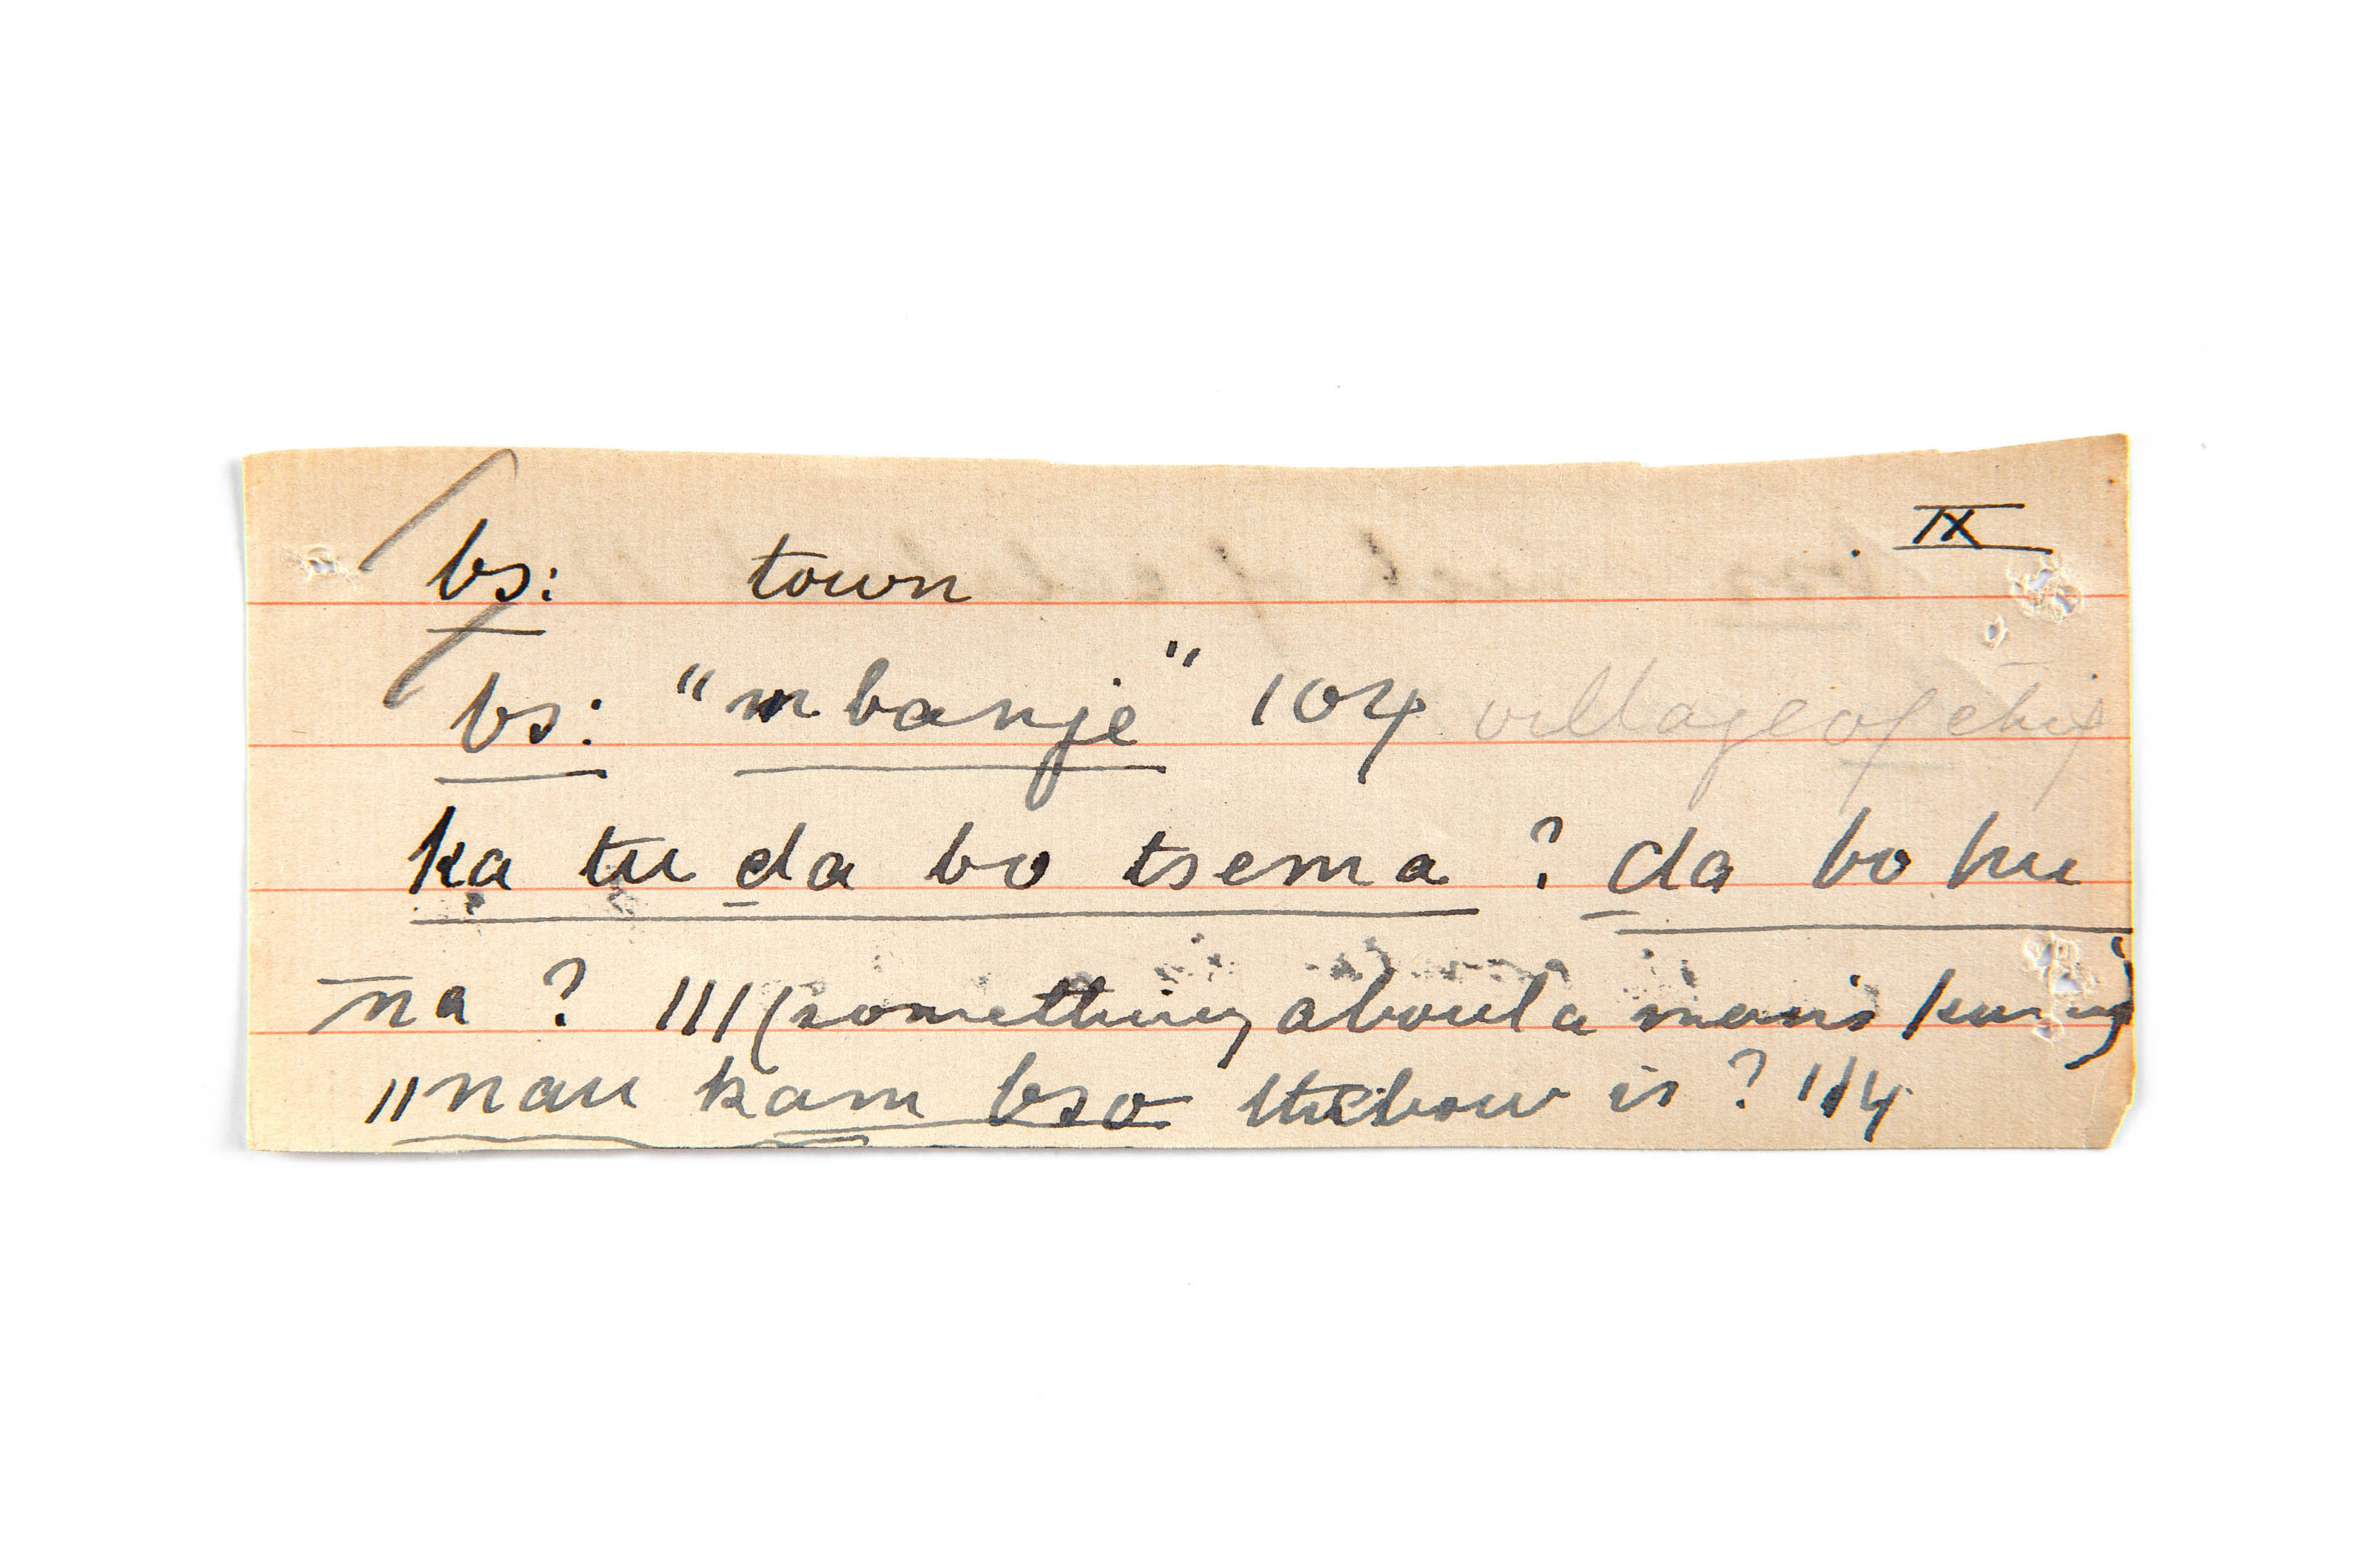 IX
bs: town
bs: "mbanje" 104 village of chief
ka tu da bo tsema ? da bo hu
na ? 111 (something about a man's
"nau kam bso the bow is ? 114